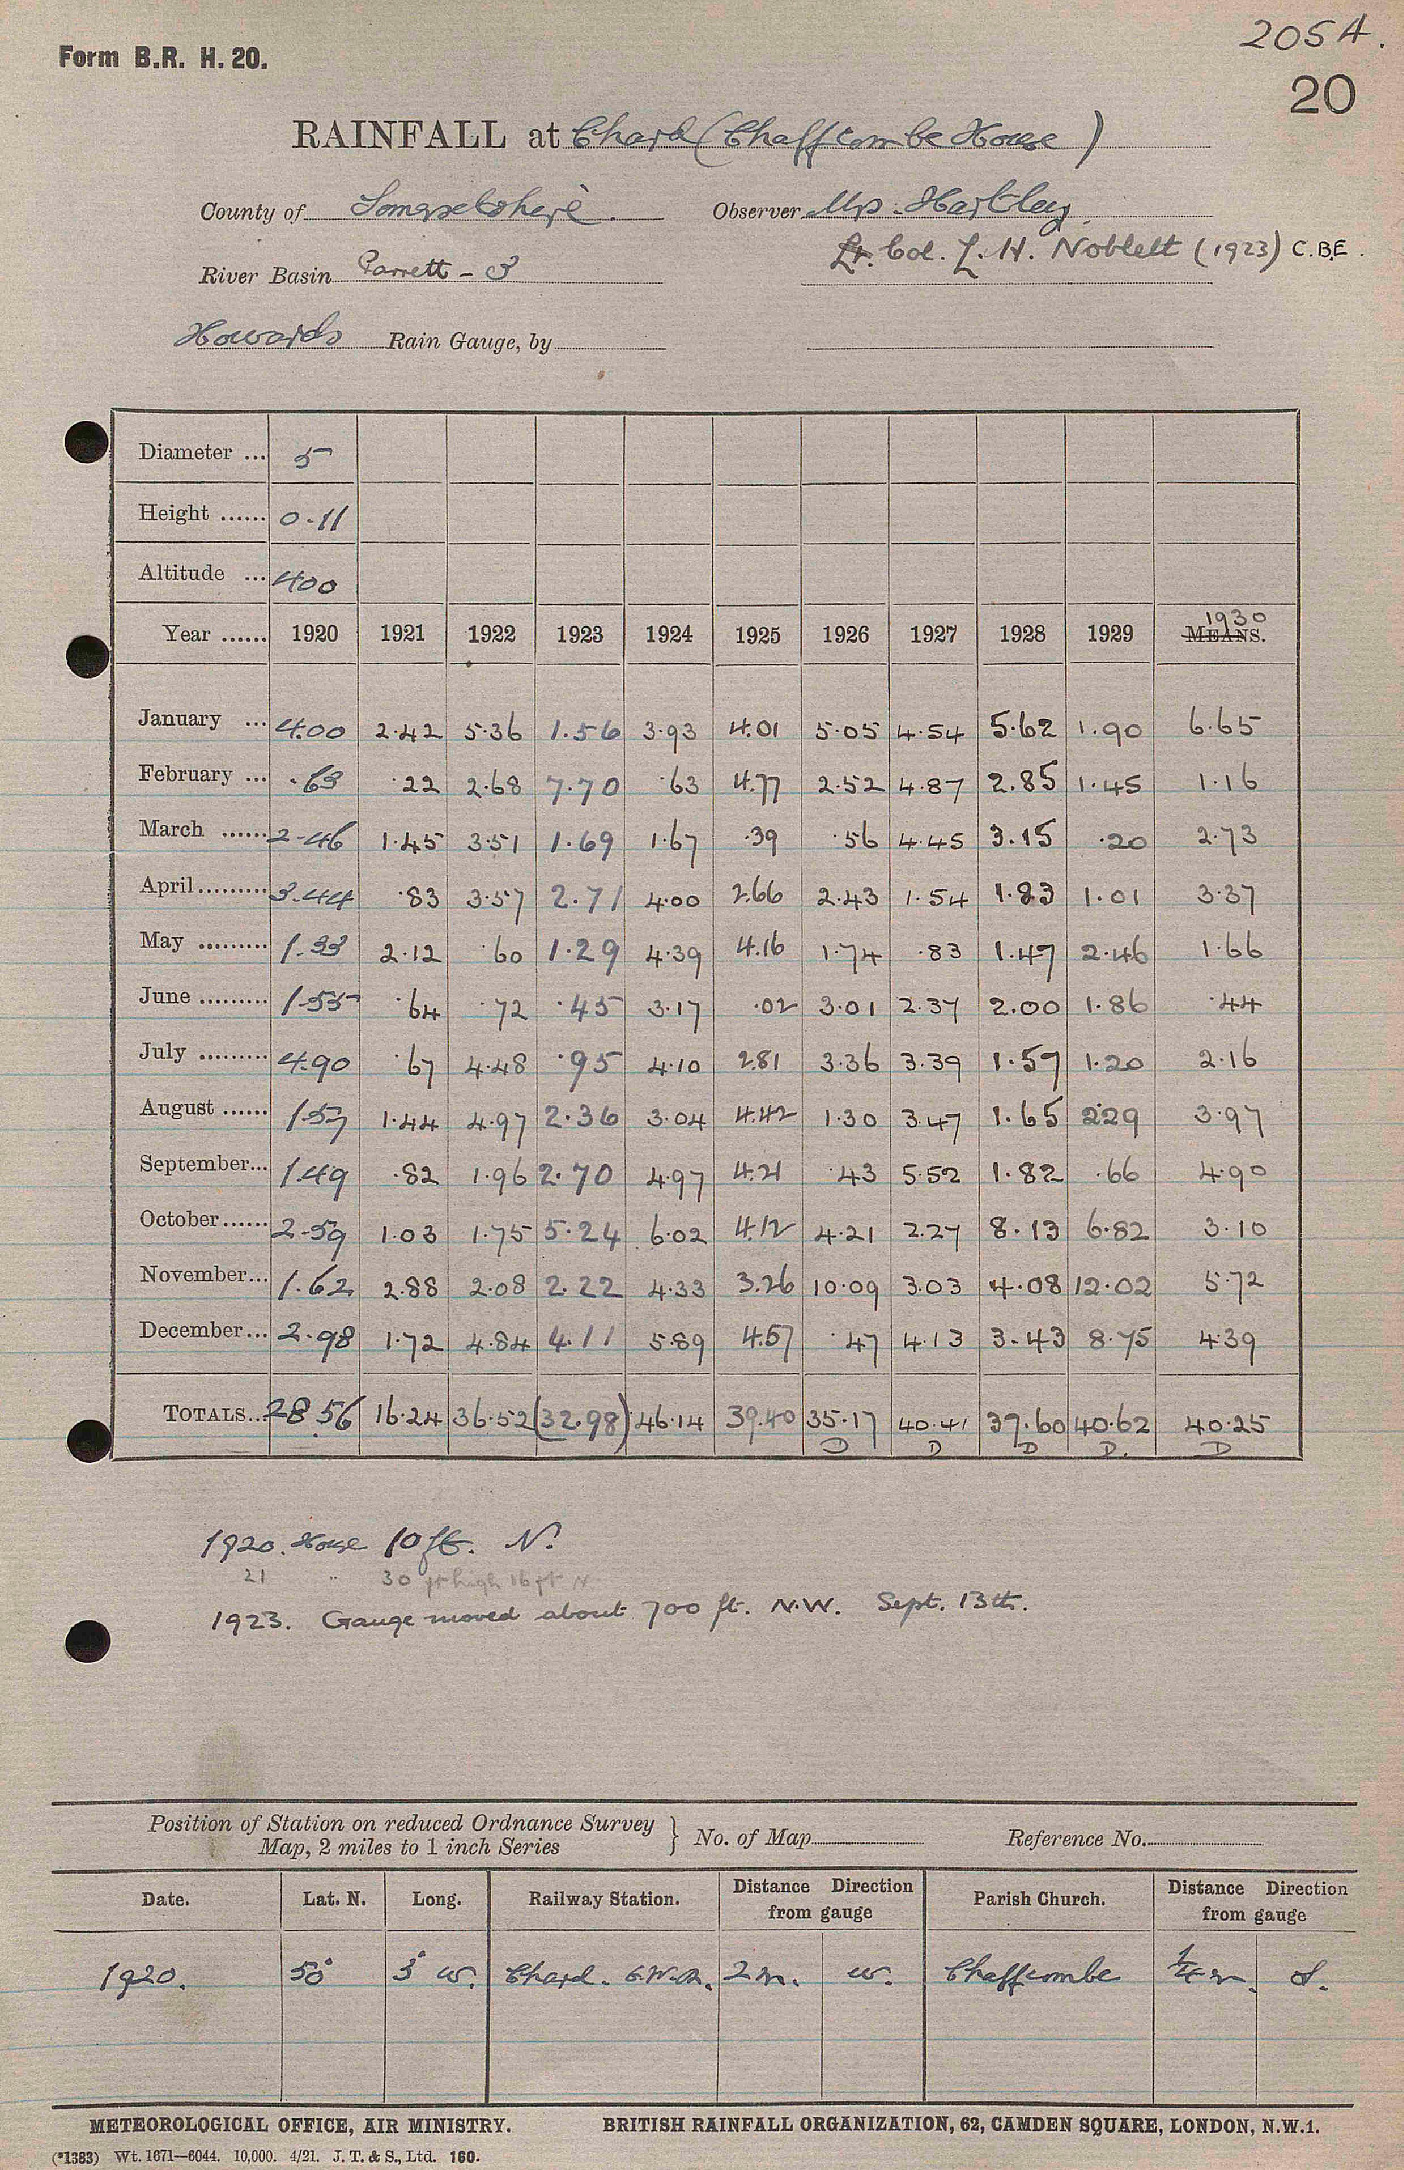 205A.
Form B.R. H. 20.
20
RAINFALL at Chard (Chaffcombe House)
County of Somersetshire. Observer Mrs. Hartley
Lt. Col. L. H. Noblett (1923) C.B.E.
River Basin Parrett - 3
Howards Rain Gauge, by
Diameter ... 5
Height ...... 0.11
Altitude ... 400
1930
Year ...... 1920 1921 1922 1923 1924 1925 1926 1927 1928 1929 MEANS.
January ... 4.00 2.42 5.36 1.56 3.93 4.01 5.05 4.54 5.62 1.90 6.65
February ... .63 .22 2.68 7.70 .63 4.77 2.52 4.87 2.85 1.45 1.16
March ...... 2.46 1.45 3.51 1.69 1.67 .39 .56 4.45 3.15 .20 2.73
April......... 3.44 .83 3.57 2.71 4.00 2.66 2.43 1.54 1.83 1.01 3.37
May ......... 1.33 2.12 .60 1.29 4.39 4.16 1.74 .83 1.47 2.46 1.66
June ......... 1.55 .64 .72 .45 3.17 .02 3.01 2.37 2.00 1.86 .44
July ......... 4.90 .67 4.48 .95 4.10 2.81 3.36 3.39 1.57 1.20 2.16
August ...... 1.57 1.44 4.97 2.36 3.04 4.42 1.30 3.47 1.65 2.29 3.97
September... 1.49 .82 1.96 2.70 4.97 4.21 .43 5.52 1.82 .66 4.90
October...... 2.59 1.03 1.75 5.24 6.02 4.12 4.21 2.27 8.13 6.82 3.10
November... 1.62 2.88 2.08 2.22 4.33 3.26 10.09 3.03 4.08 12.02 5.72
December... 2.98 1.72 4.84 4.11 5.89 4.57 .47 4.13 3.43 8.75 4.39
TOTALS... 28.56 16.24 36.52 (32.98) 46.14 39.40 35.17 40.41 37.60 40.62 40.25
D D D D. D
1920. House 10 ft. N.
21 " 30 ft high 16 ft N
1923. Gauge moved about 700 ft. N.W. Sept. 13th.
Position of Station on reduced Ordnance Survey
Map, 2 miles to 1 inch Series } No. of Map Reference No.
Date. Lat. N. Long. Railway Station. Distance Direction from gauge Parish Church. Distance Direction from gauge
1920. 50° 3° W. Chard. G.W.R. 2 m. W. Chaffcombe 1/4 m. S.
METEOROLOGICAL OFFICE, AIR MINISTRY. BRITISH RAINFALL ORGANIZATION, 62, CAMDEN SQUARE, LONDON, N.W.1.
(*1383) Wt. 1671—6044. 10,000. 4/21. J. T. & S., Ltd. 160.